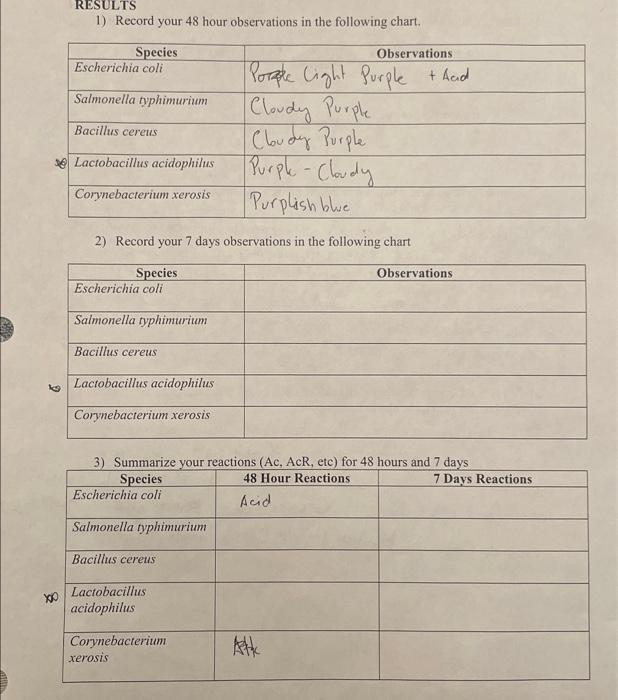 RESULTS
1) Record your 48 hour observations in the following chart.
Species Observations
Escherichia coli Light Purple + Acid
Salmonella typhimurium Cloudy Purple
Bacillus cereus Cloudy Purple
Lactobacillus acidophilus Purple - Cloudy
Corynebacterium xerosis Purplish blue
2) Record your 7 days observations in the following chart
Species Observations
Escherichia coli
Salmonella typhimurium
Bacillus cereus
Lactobacillus acidophilus
Corynebacterium xerosis
3) Summarize your reactions (Ac, AcR, etc) for 48 hours and 7 days
Species 48 Hour Reactions 7 Days Reactions
Escherichia coli Acid
Salmonella typhimurium
Bacillus cereus
Lactobacillus
acidophilus
Corynebacterium
xerosis